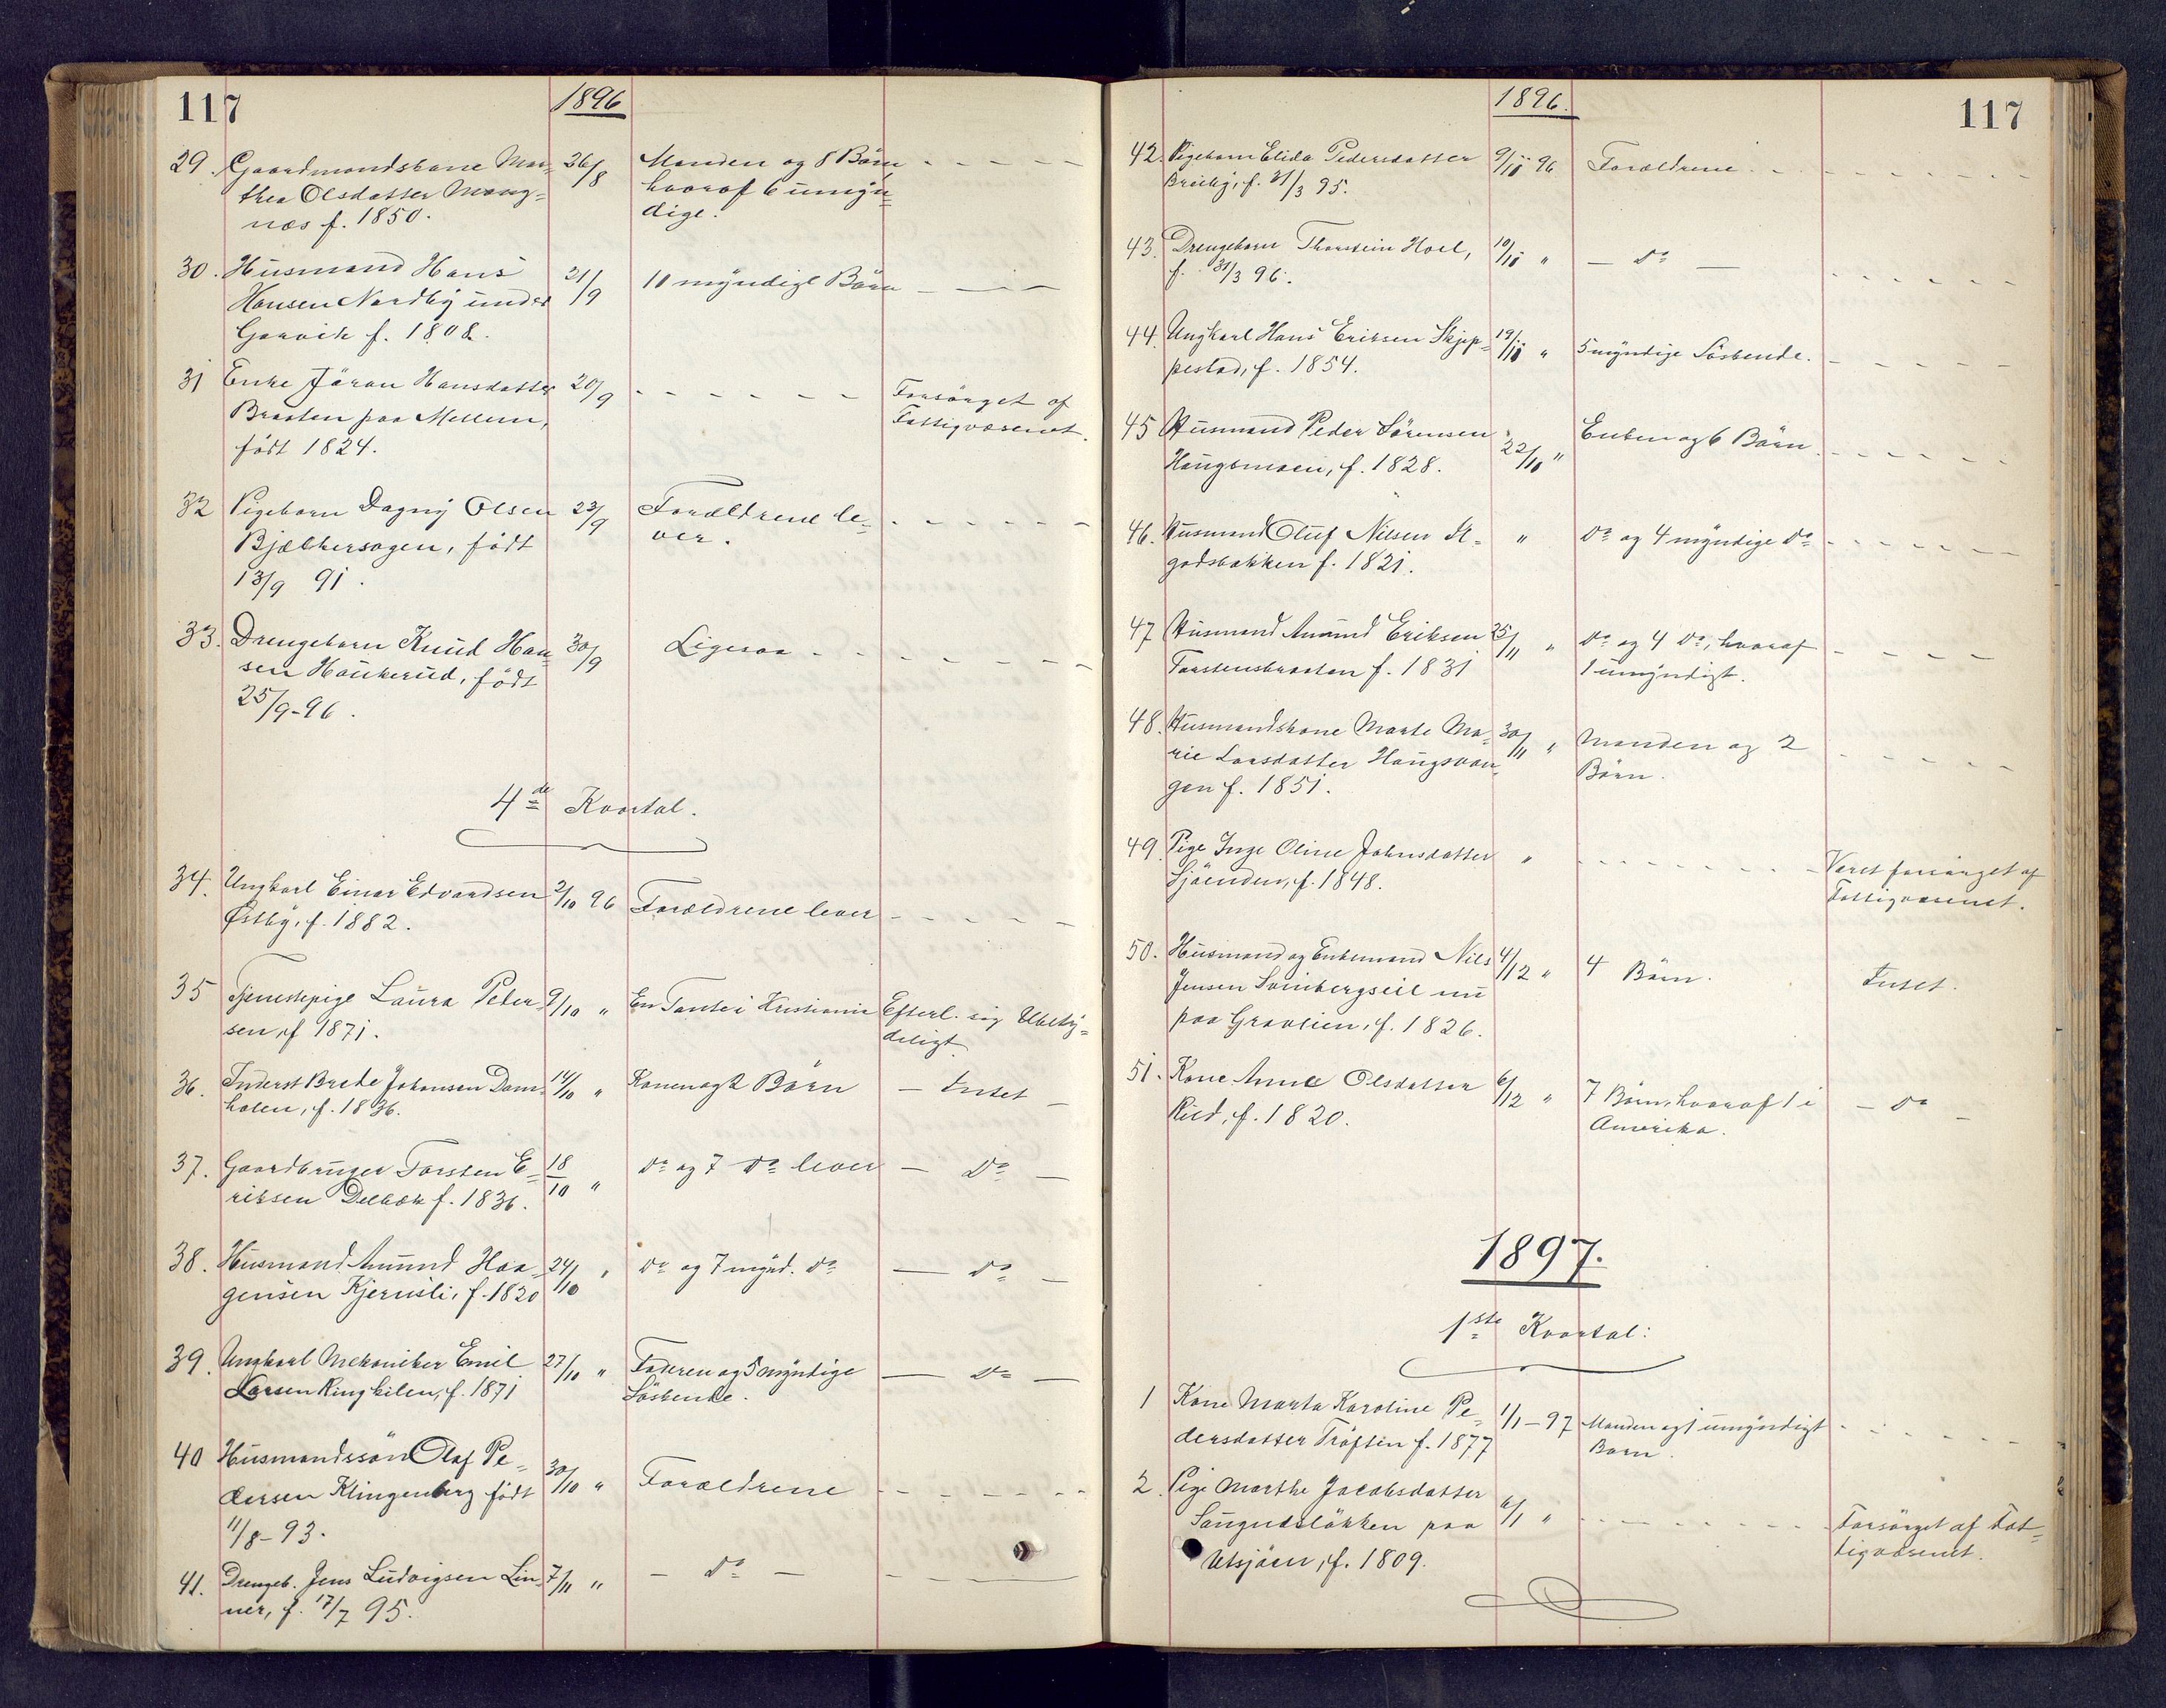 117
1896
29. Gaardmandskone Mar- 26/8 Manden og 8 Børn - - - -
thea Olsdatter Mang- hvoraf 6 umyn-
næs f. 1850. dige.
30. Husmand Hans 21/9 10 myndige Børn - - -
Hansen Nordby under
Garvik f. 1808.
31 Enke Jöran Hansdatter 20/9 - - - - - - Forsörget af
Braaten paa Mellem, Fattigvæsenet.
født 1824.
32 Pigebarn Dagny Olsen 23/9 Forældrene le- - - - - -
Bjælkersagen, født ver.
13/9 91.
33. Drengebarn Knud Han- 30/9 Ligesaa - - - - - - -
sen Haukerud, født
25/9-96.
4de Kvartal.
34. Ungkarl Einar Edvardsen 2/10 96 Forældrene lever - - - - -
Østby, f. 1882.
35 Tjenestepige Laura Peder- 9/10 " En Tante i Kristiania Efterl. sig Ubety-
sen, f 1871. deligt
36. Inderst Brede Johansen Dam- 14/10 " Konen og 2 Børn - Intet -
holen, f. 1836.
37. Gaardbruger Torsten E- 18/10 " Do og 7 Do lever - Do -
riksen Delbæk f. 1836.
38. Husmand Amund Haa- 24/10 " Do og 7 mynd. Do - Do -
gensen Kjernsli, f. 1820
39. Ungkarl Mekaniker Emil 27/10 " Faderen og 5 myndige - Do -
Larsen Ringkilen, f. 1871 Söskende.
40 Husmandssøn Olaf Pe- 30/10 " Forældrene - - - - - -
dersen Klingenberg født
11/8-93.
41. Drengeb. Jens Ludvigsen Lin- 7/11 " - Do - - - -
ner, f. 17/7 95.
1896.
117
42. Pigebarn Elida Pedersdatter 9/11 96 Forældrene - - - - - - -
Breiby, f. 31/3 95.
43. Drengebarn Thorstein Hoel, 10/11 " - Do - - - - - -
f. 31/3 96.
44. Ungkarl Hans Eriksen Skjep- 19/11 " 5 myndige Söskende. - - - -
pestad, f. 1854.
45 Husmand Peder Sörensen 22/11 " Enken og 6 Börn - - - - -
Haugsmoen, f. 1828.
46. Husmand Oluf Nilsen St- " Do og 4 myndige Do - - - - -
godsbakken f. 1821.
47 Husmand Amund Eriksen 25/11 " Do og 4 Do, hvoraf - - - -
Torstensbraaten f. 1831 1 umyndigt.
48. Husmandskone Marte Ma- 30/11 " Manden og 2 - - - - -
rie Larsdatter Haugsvan- Börn.
gen f. 1851.
49. Pige Inge Oline Johnsdatter " - - - - - - Været forsörget af
Sjöenden, f. 1848. Fattigvæsenet.
50. Husmand og Enkemand Nils 4/12 " 4 Börn. Intet.
Jensen Svinbergseie nu
paa Gravlien, f. 1826.
51. Kone Anne Olsdatter 6/12 " 7 Börn, hvoraf 1 i - Do -
Rud, f. 1820. Amerika.
1897.
1ste Kvartal:
1 Kone Marta Karoline Pe- 1/1-97 Manden og 1 umyndigt - - - - -
dersdatter Tröften f. 1877 Barn.
2. Pige Marthe Jacobsdatter 6/1 " - - - - - - - Forsörget af Fat-
Saugudslökken paa tigvæsenet.
Utsjöen, f. 1809.